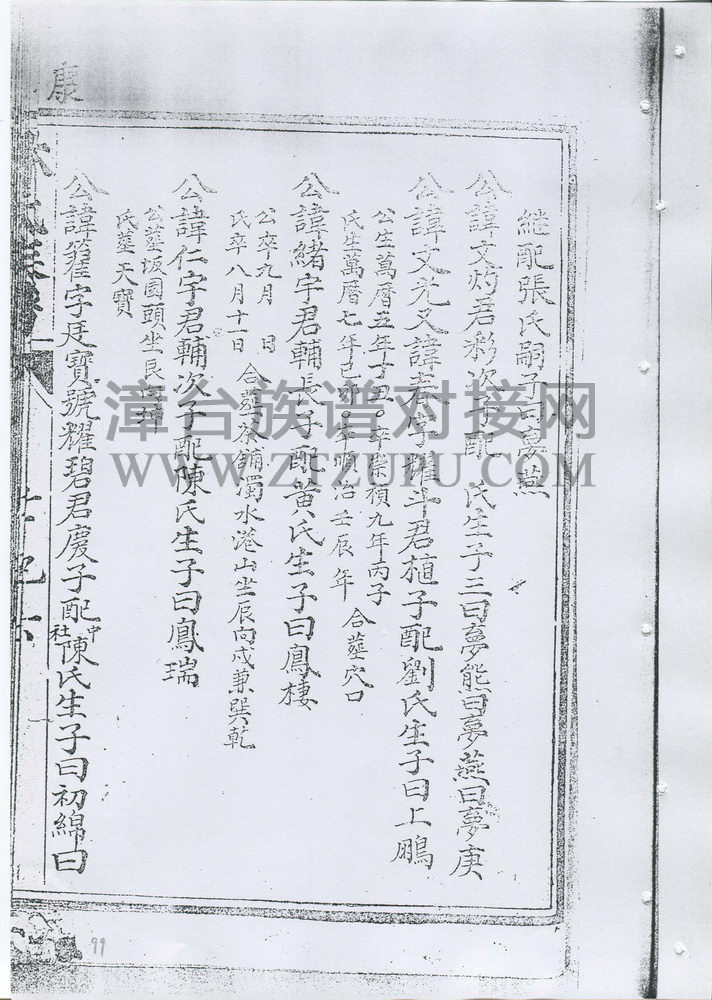 継配張氏嗣子曰夢燕
公諱文灼君彩次子配 氏生子三曰夢熊曰夢燕曰夢庚
公諱文光又諱春字耀斗君植子配劉氏生子曰上鵬
公生萬曆五年丁丑。卒崇禎九年丙子
氏生萬曆七年己卯。卒順治壬辰年 合葬穴口
公諱緒字君輔長子配黃氏生子曰鳳棲
公卒九月 日
氏卒八月十一日 合葬茶鋪濁水港山坐辰向戌兼巽乾
公諱仁字君輔次子配陳氏生子曰鳳瑞
公葬坂園頭坐艮
氏葬天寶
公諱字廷寶號耀碧君慶子配中社陳氏生子曰初綿曰
康
99
漳台族谱对接网
WWW.ZTZUPU.COM